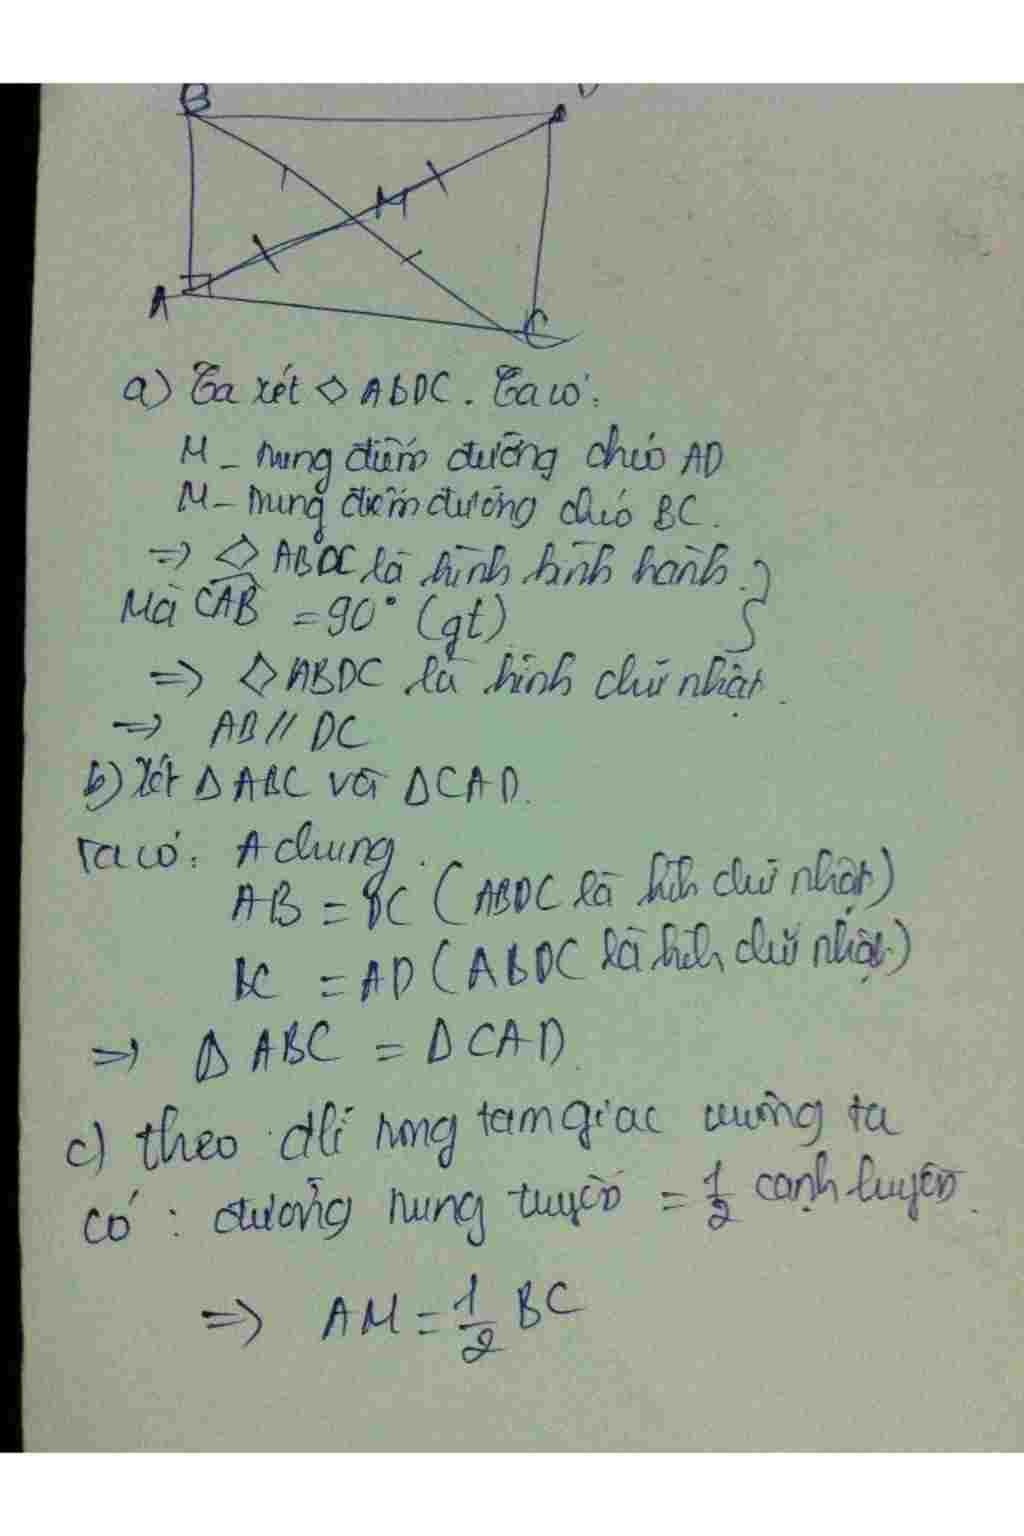 B
D
M
A
C
a) Ta xét ◇ ABDC. Ta có:
M - trung điểm đường chéo AD
M - trung điểm đường chéo BC.
=> ◇ ABDC là hình bình hành.
Mà CAB = 90° (gt)
=> ◇ ABDC là hình chữ nhật.
=> AB // DC
b) Xét Δ ABC và Δ CAD.
Ta có: A chung.
AB = DC (ABDC là hình chữ nhật)
BC = AD (ABDC là hình chữ nhật)
=> Δ ABC = Δ CAD
c) theo đlí trong tam giác vuông ta
có: đường trung tuyến = 1/2 cạnh huyền.
=> AM = 1/2 BC